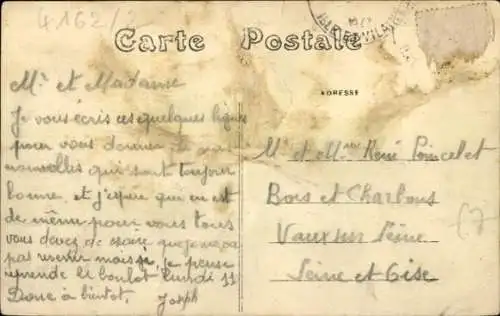 4162/2
Carte Postale
ADRESSE
ILLE-ET-VILAINE
Mr et Madame
Je vous écris ces quelques lignes
pour vous donner de mes
nouvelles qui sont toujour
bonne et j'espère que en est
de même pour vous tous
vous devez de que je ne
pas revenir mois si je pense
reprendre le boulot lundi 11
Donc à bientôt. Joseph
Mr et Mme René Poincelet
Bois et Charbons
Vaux sur Seine
Seine et Oise